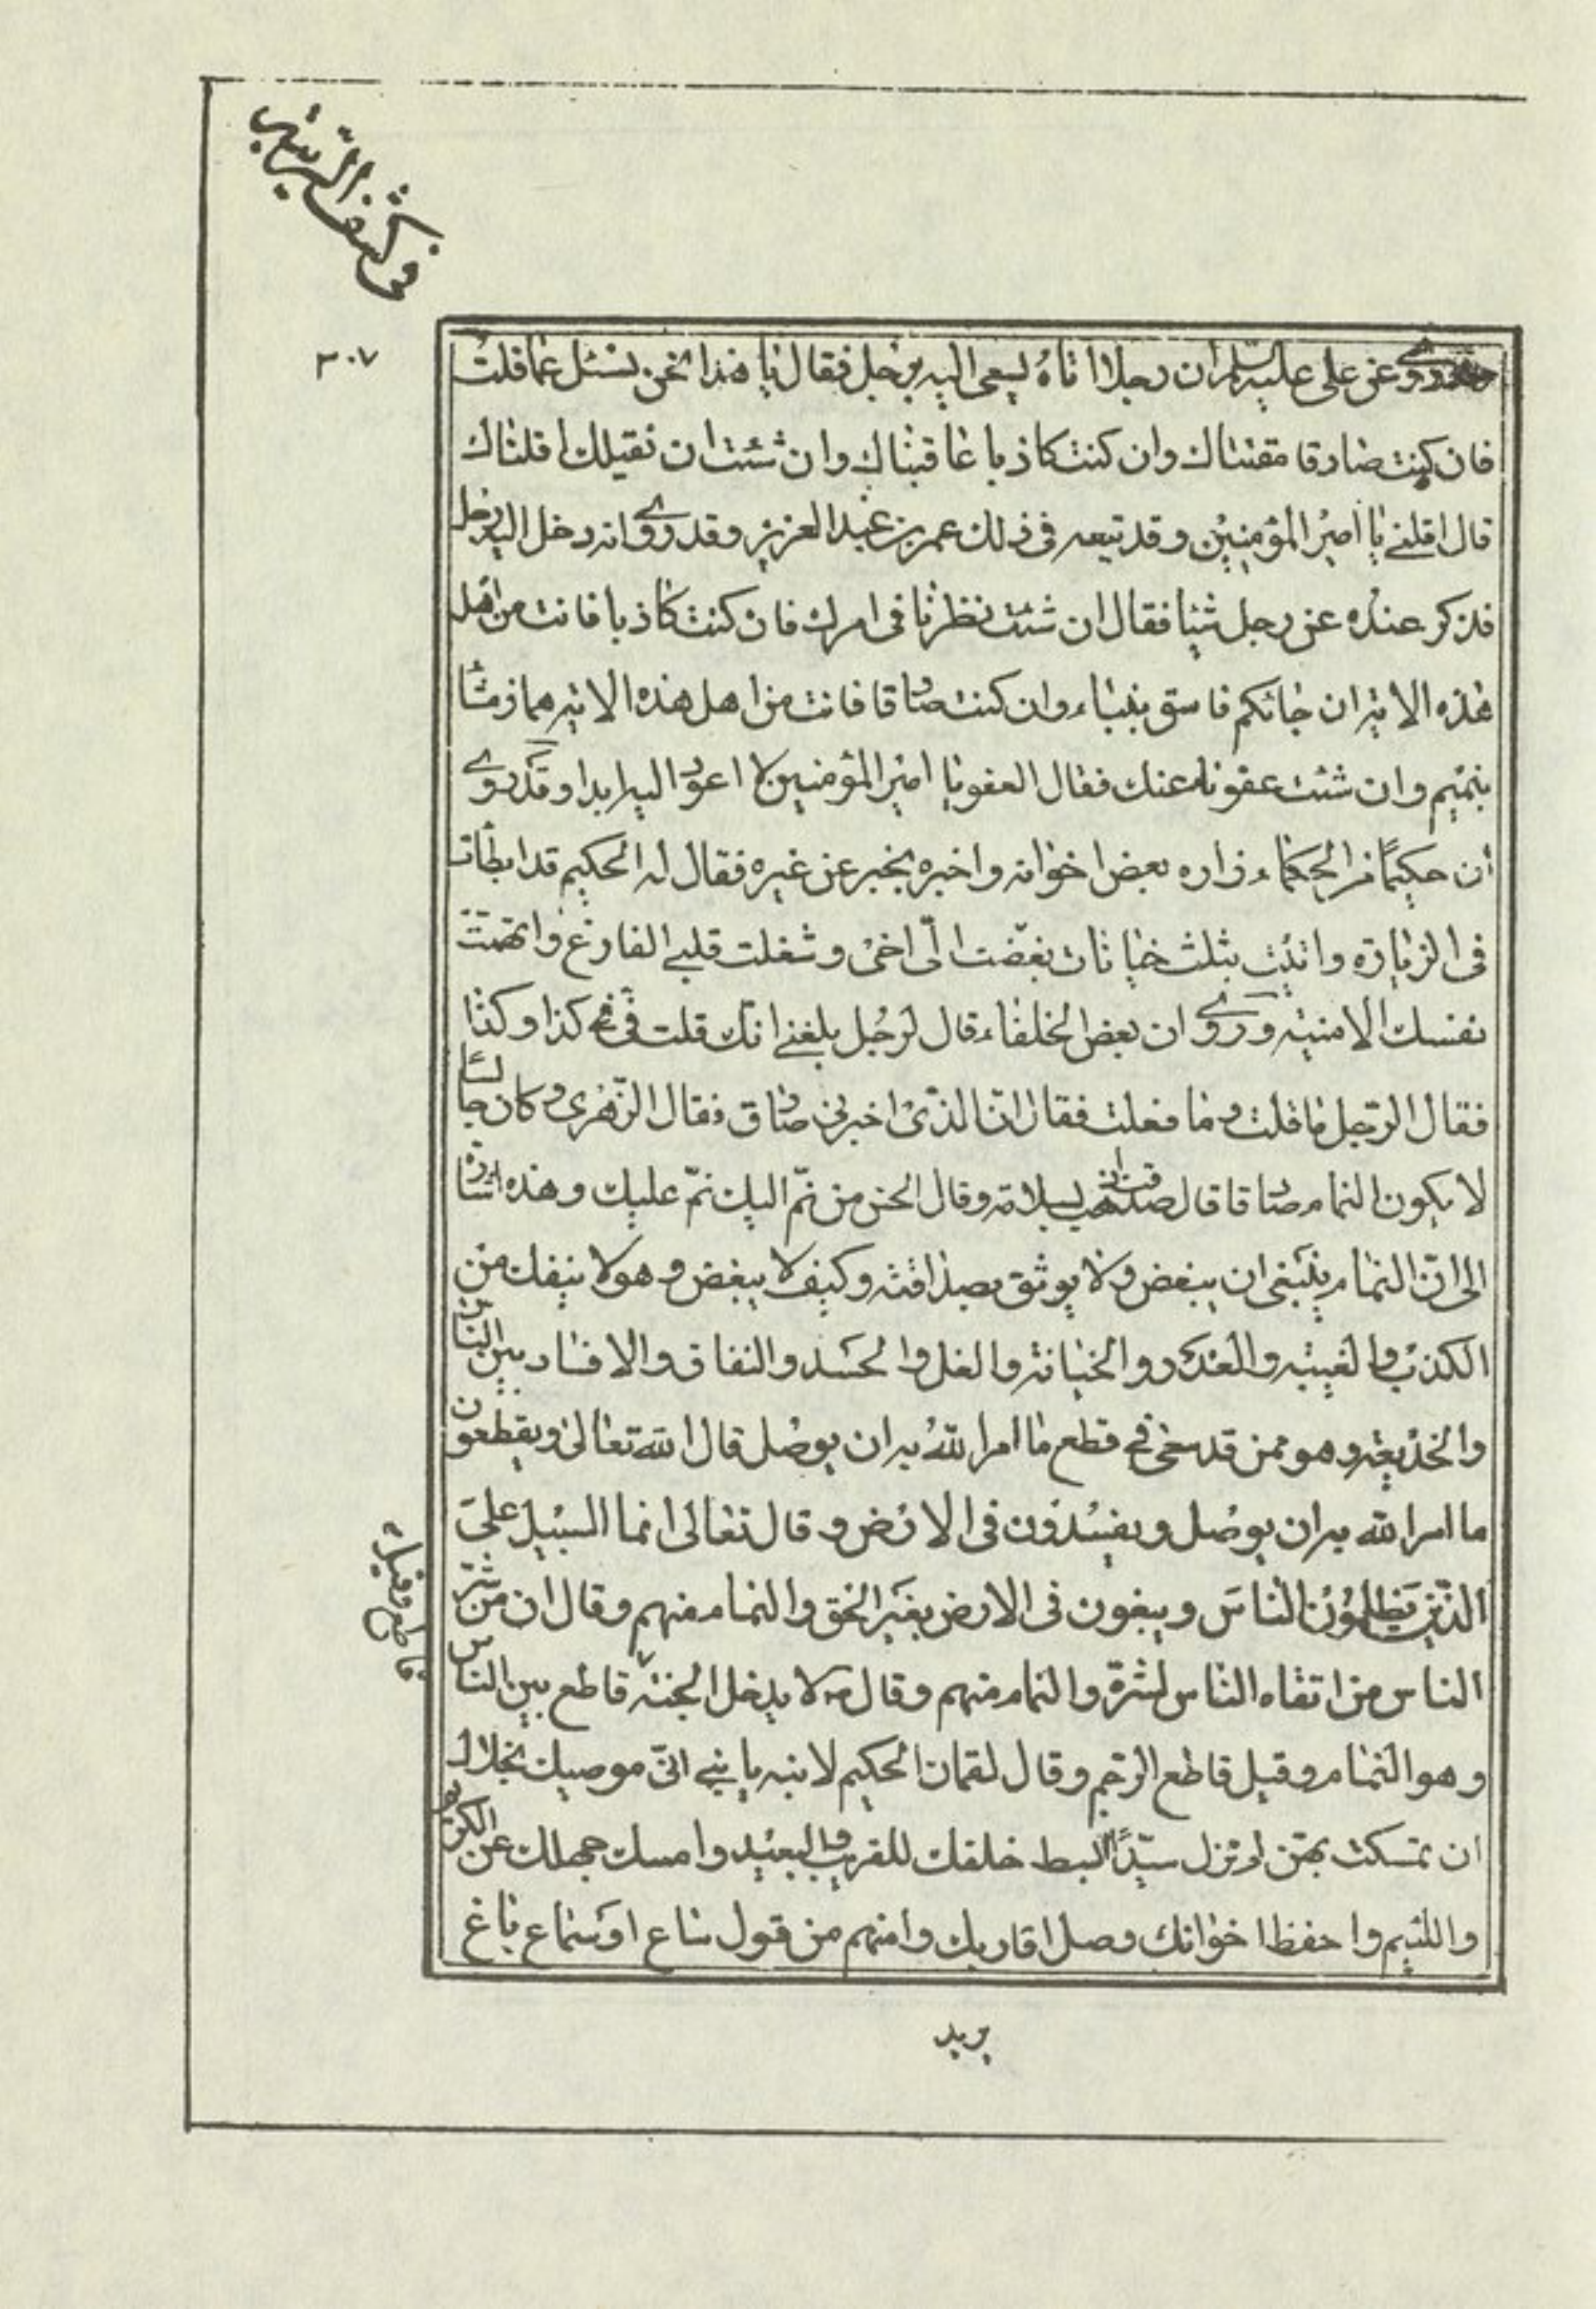 في كشف الريبة
٣٠٧
وقد روى عن علي عليه السلم ان رجلا اتاه يسعى اليه برجل فقال يا هذا نحن نسئل عما قلت
فان كنت صادقا مقتناك وان كنت كاذبا عاقبناك وان شئت ان نقيلك اقلناك
قال اقلني يا امير المؤمنين وقد تبعه في ذلك عمر بن عبد العزيز وقد روى انه دخل اليه رجل
فذكر عنده عن رجل شيئا فقال ان شئت نظرنا في امرك فان كنت كاذبا فانت من اهل
هذه الاية ان جائكم فاسق بنباء وان كنت صادقا فانت من اهل هذه الاية هماز مشا
بنميم وان شئت عفونا عنك فقال العفو يا امير المؤمنين لا اعود اليه ابدا وقد روى
أن حكيمًا من الحكماء زاره بعض اخوانه واخبره بخبر عن غيره فقال له الحكيم قد ابطات
في الزيارة واتيت بثلث خيانات بغّضت الىّ اخى وشغلت قلبي الفارغ واتهمت
نفسك الامنية وروى ان بعض الخلفاء قال لرجل بلغني انك قلت فىّ كذا وكذا
فقال الرّجل ما قلت وما فعلت فقال انّ الذّى اخبرنى صادق فقال الزّهرى وكان جالسًا
لا يكون النمام صادقا قال صدقت اذهب بسلامة وقال الحسن من نمّ اليك نمّ عليك وهذه اشارة
الى انّ النمام ينبغى ان يبغض ولا يوثق بصداقته وكيف لا يبغض وهو لا ينفك من
الكذب والغيبة والغدر والخيانة والغل والحسد والنفاق والافساد بين الناس
والخديعة وهو ممن قد سعى في قطع ما امر اللّه به ان يوصل قال اللّه تعالى ويقطعون
ما امر اللّه به ان يوصل ويفسدون في الارض وقال تعالى انما السبيل على
الذين يظلمون الناس ويبغون في الارض بغير الحق والنمام منهم وقال ان من شرّ
الناس من اتقاه الناس لشرّه والنمام منهم وقال ص لا يدخل الجنة قاطع بين الناس
وهو النمام وقيل قاطع الرّحم وقال لقمان الحكيم لابنه يا بني انّى موصيك بخلال
ان تمسكت بهن لم تزل سيّدًا البسط خلقك للقريب والبعيد وامسك جهلك عن الكريم و
واللئيم واحفظ اخوانك وصل اقاربك وامنهم من قول ساع او سماع باغ
قاطع وقيل
يريد